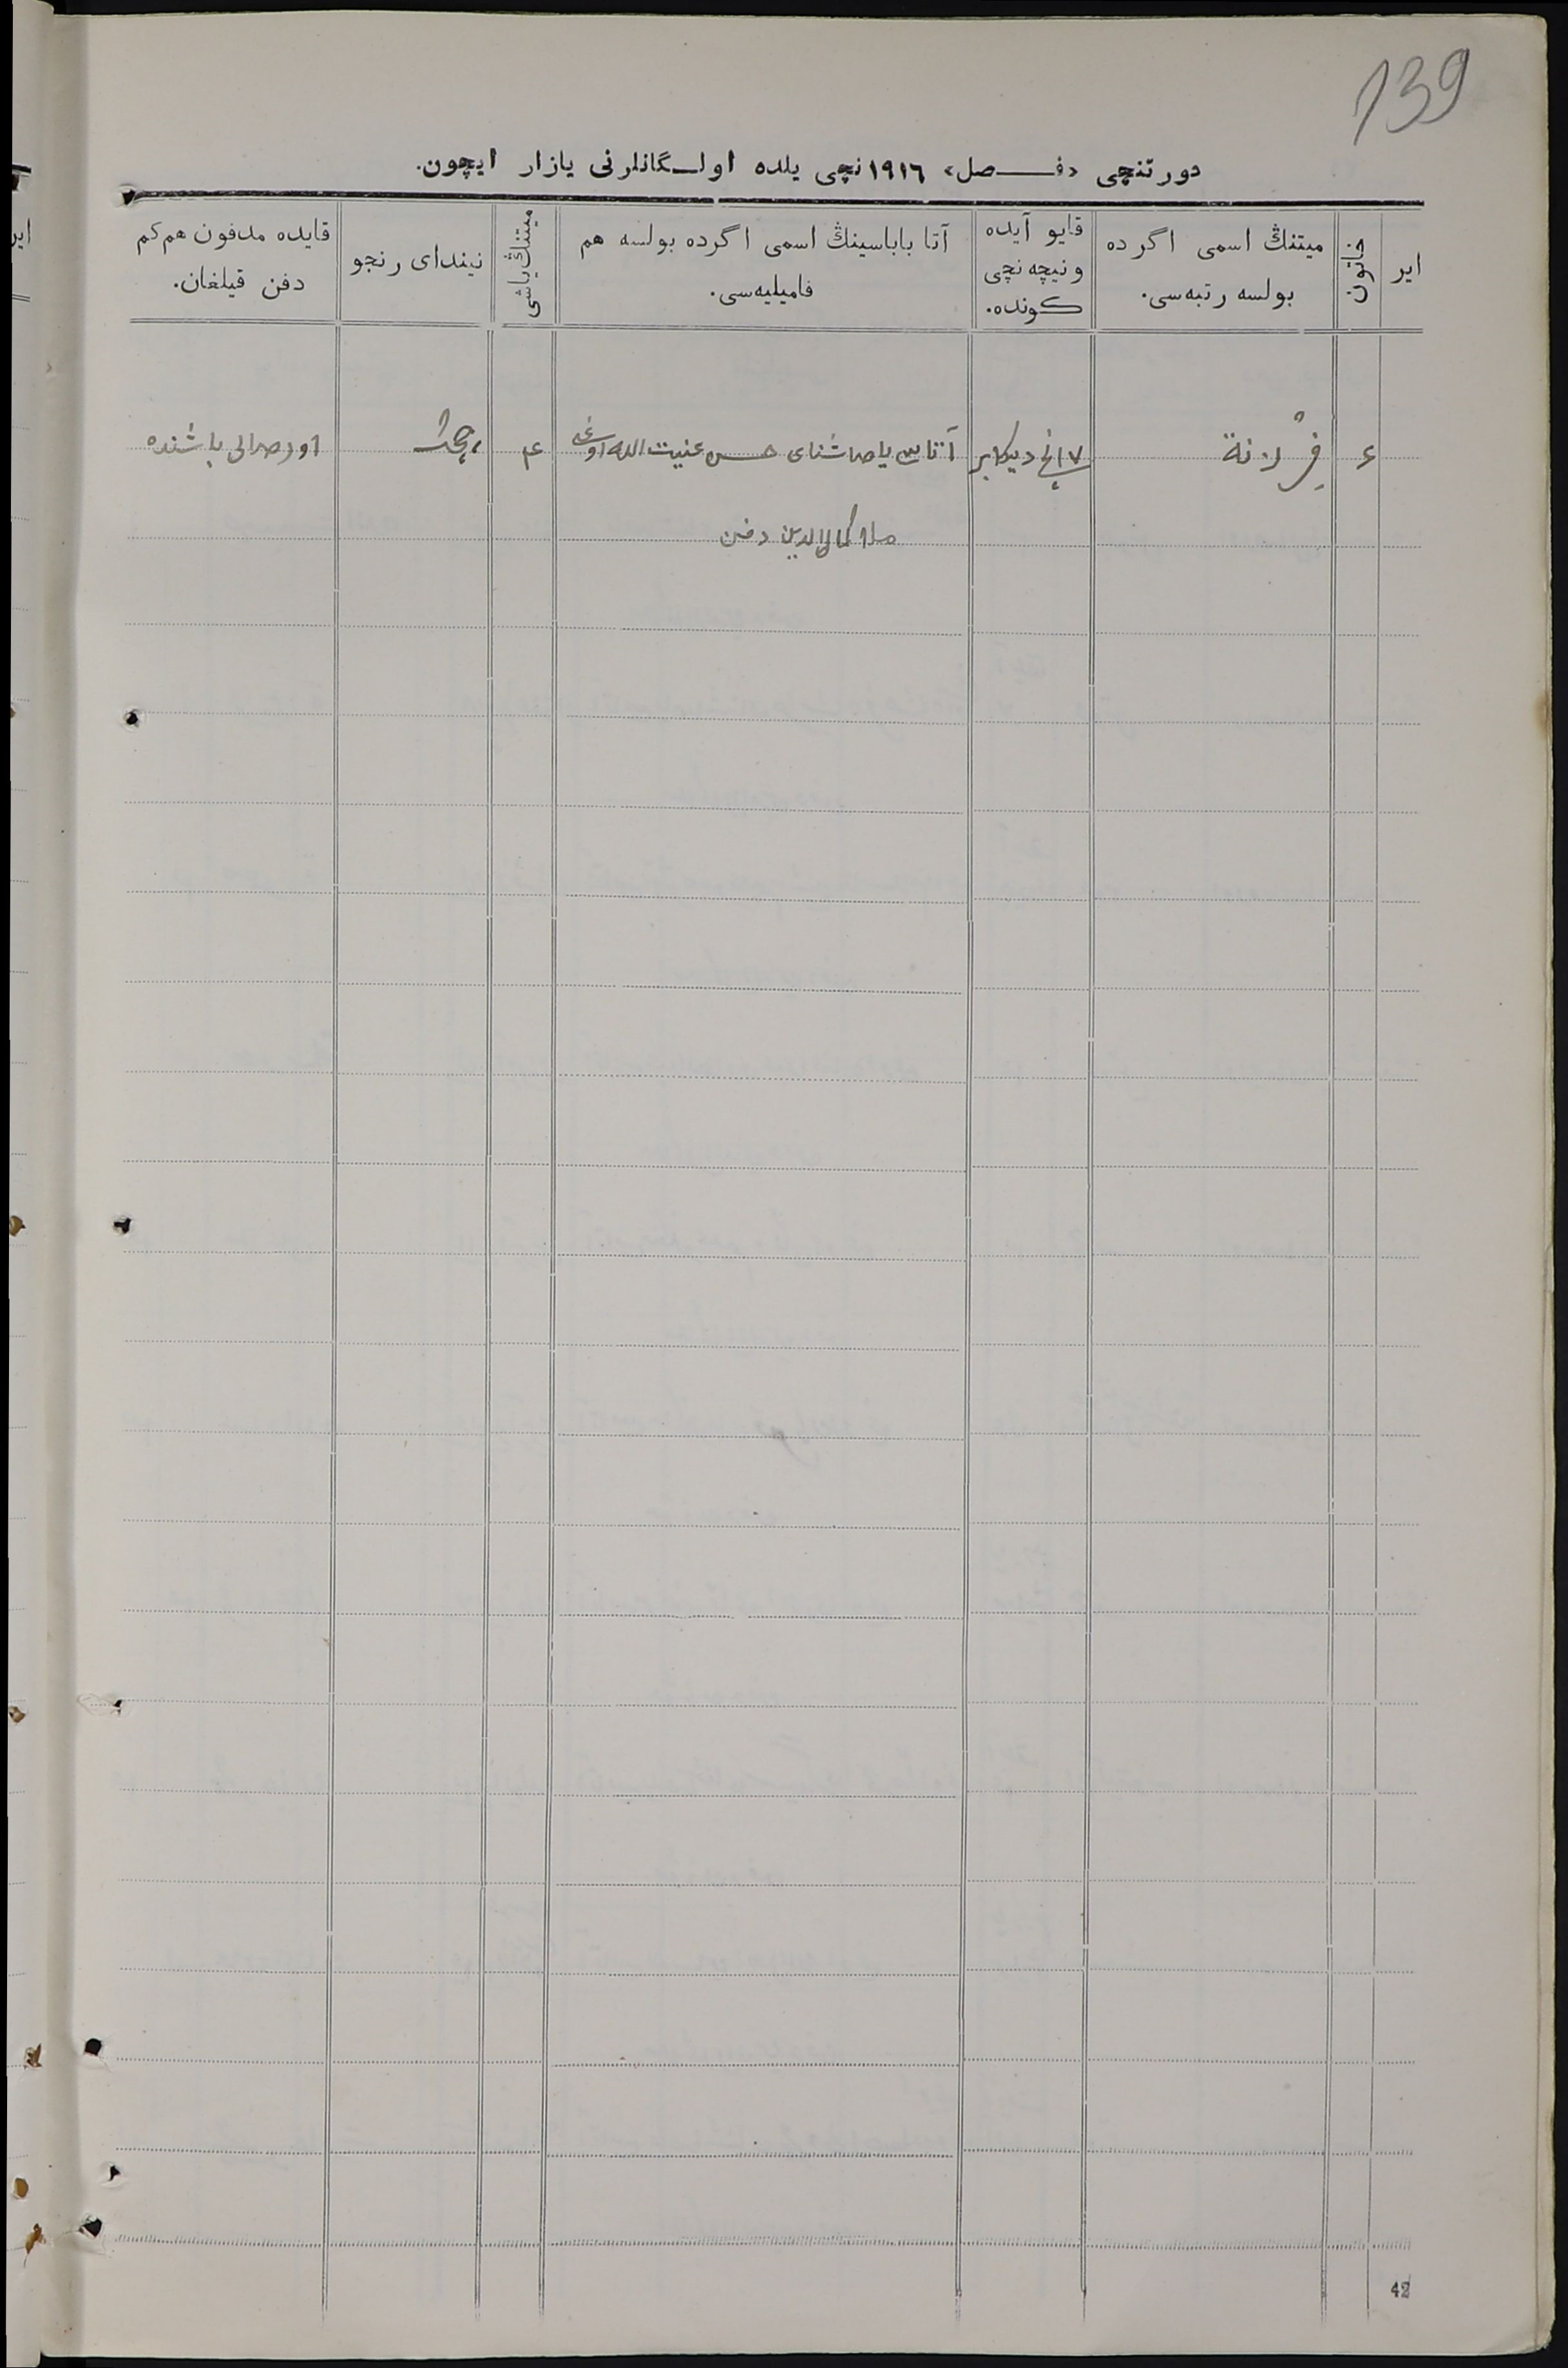 139
دورتنچی «فـــصل» ١٩١٦ نچی یلده اولـگانلرنی یازار ایچون.
ایر
خاتون
میتنڭ اسمی اگرده بولسه رتبه‌سی.
قایو آیده ونیچه نچی کونده.
آتا باباسینڭ اسمی اگرده بولسه هم فامیلیه‌سی.
میتنڭ یاشی
نیندای رنجو
قایده مدفون هم کم دفن قیلغان.
۴
١٧ نچی دیکابر
حسن عنیت الله اوغلی
۴
باشنده
ملا کمال الدین دفن
42